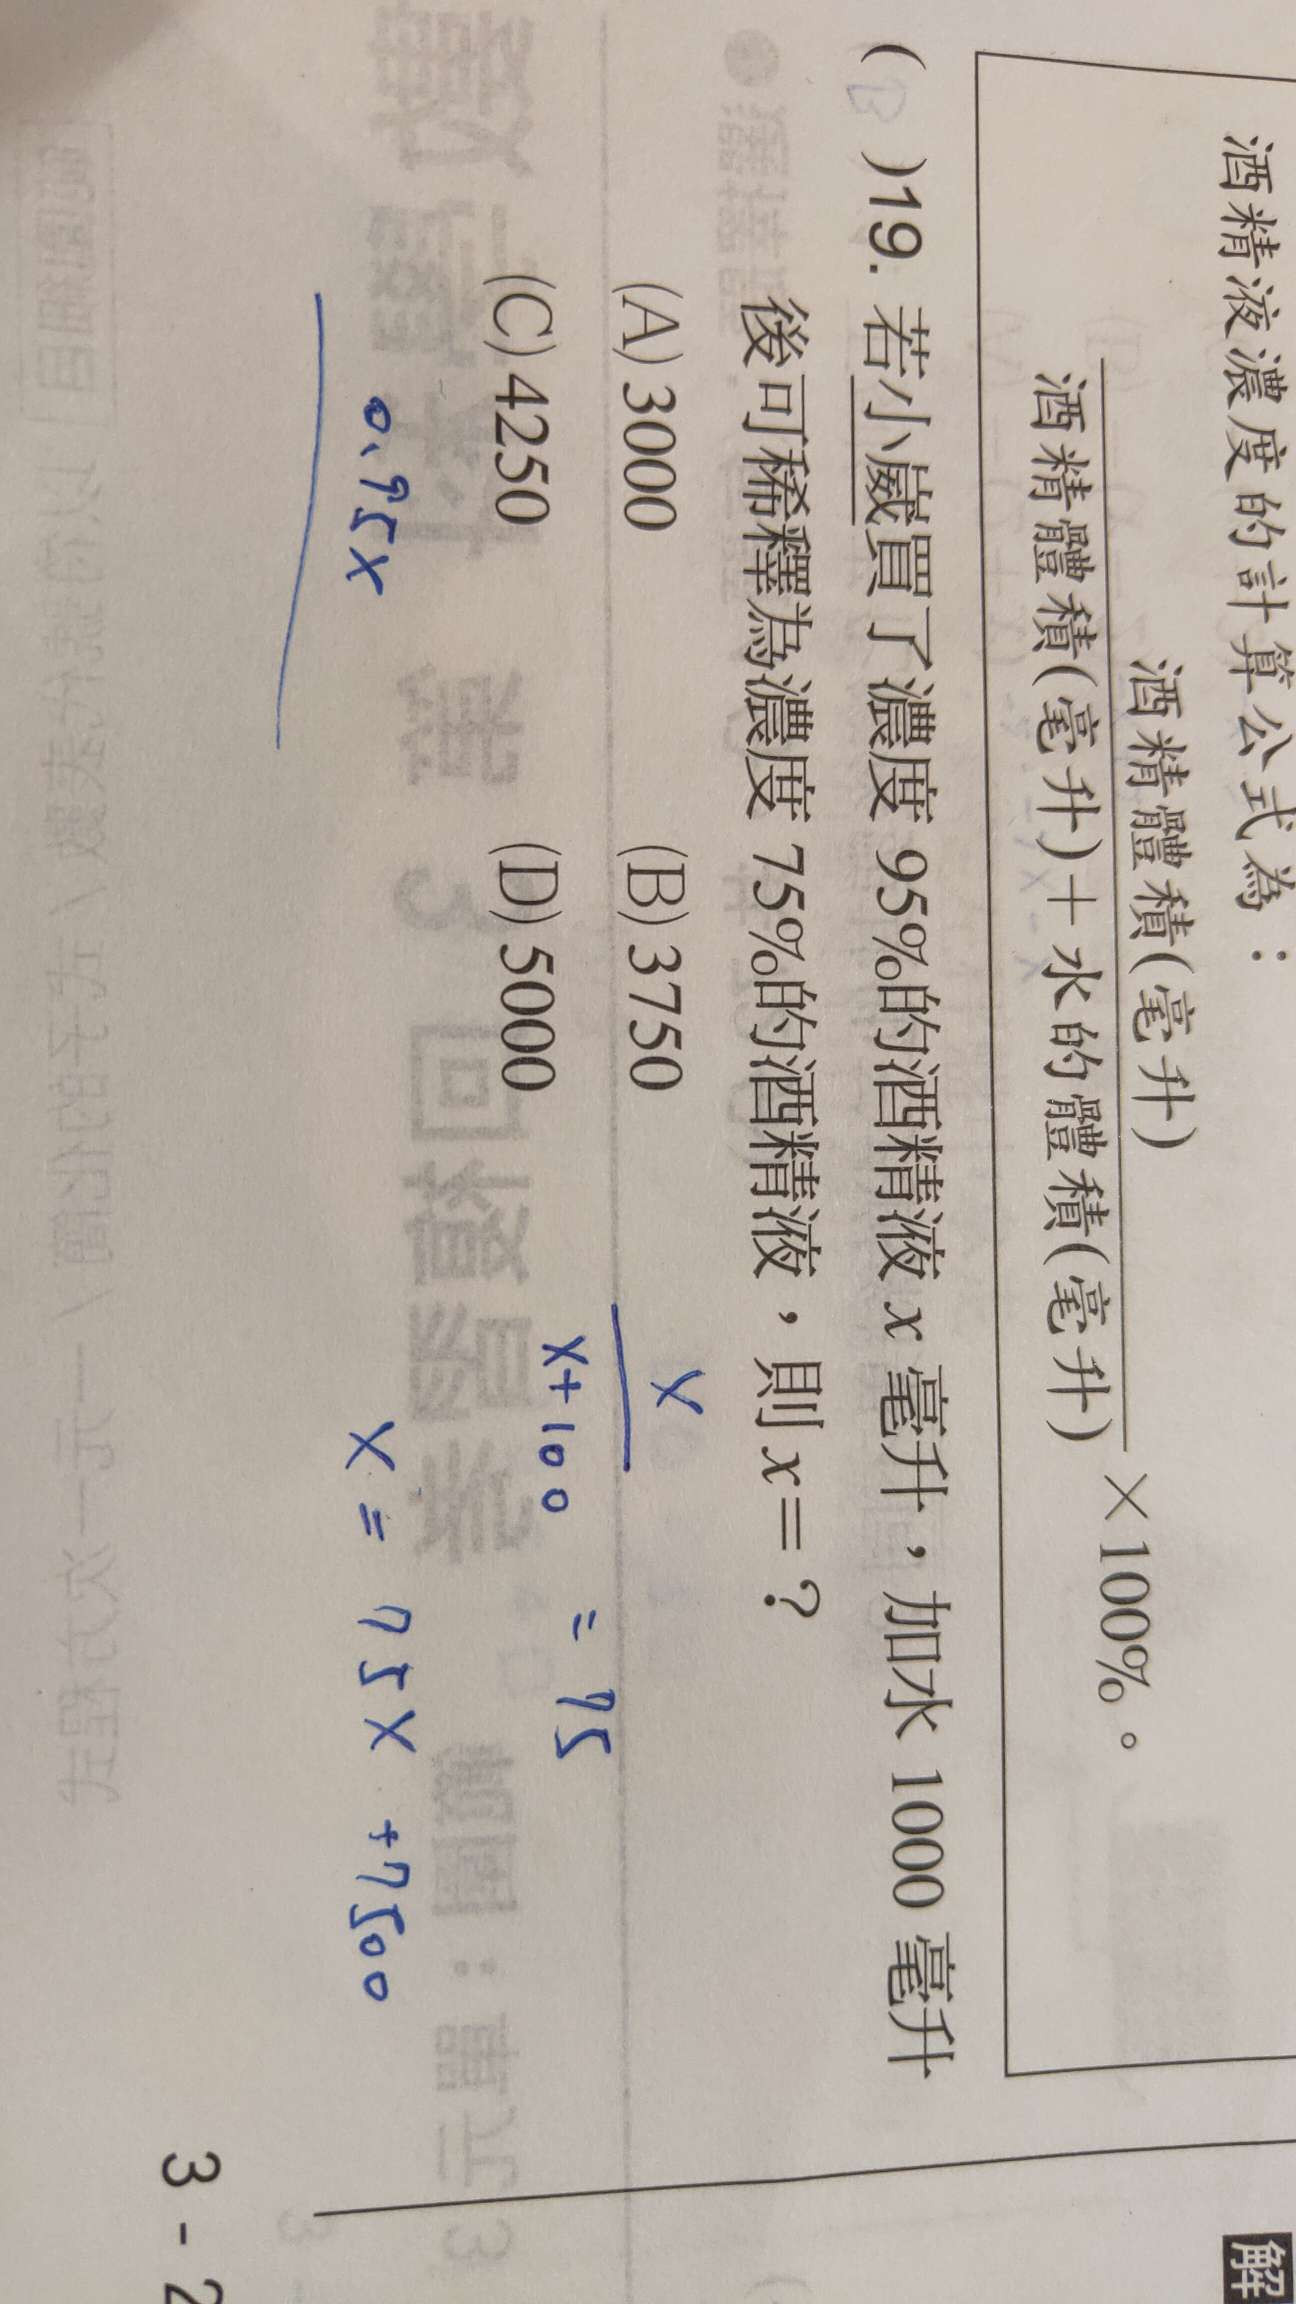 酒精液濃度的計算公式為：
酒精體積(毫升)
酒精體積(毫升)＋水的體積(毫升)
×100%。
( B )19. 若小崴買了濃度 95%的酒精液 x 毫升，加水 1000 毫升
後可稀釋為濃度 75%的酒精液，則 x＝？
(A) 3000 (B) 3750
(C) 4250 (D) 5000
x
x+100 = 75
0.95x
x = 75x +7500
3 - 2
解